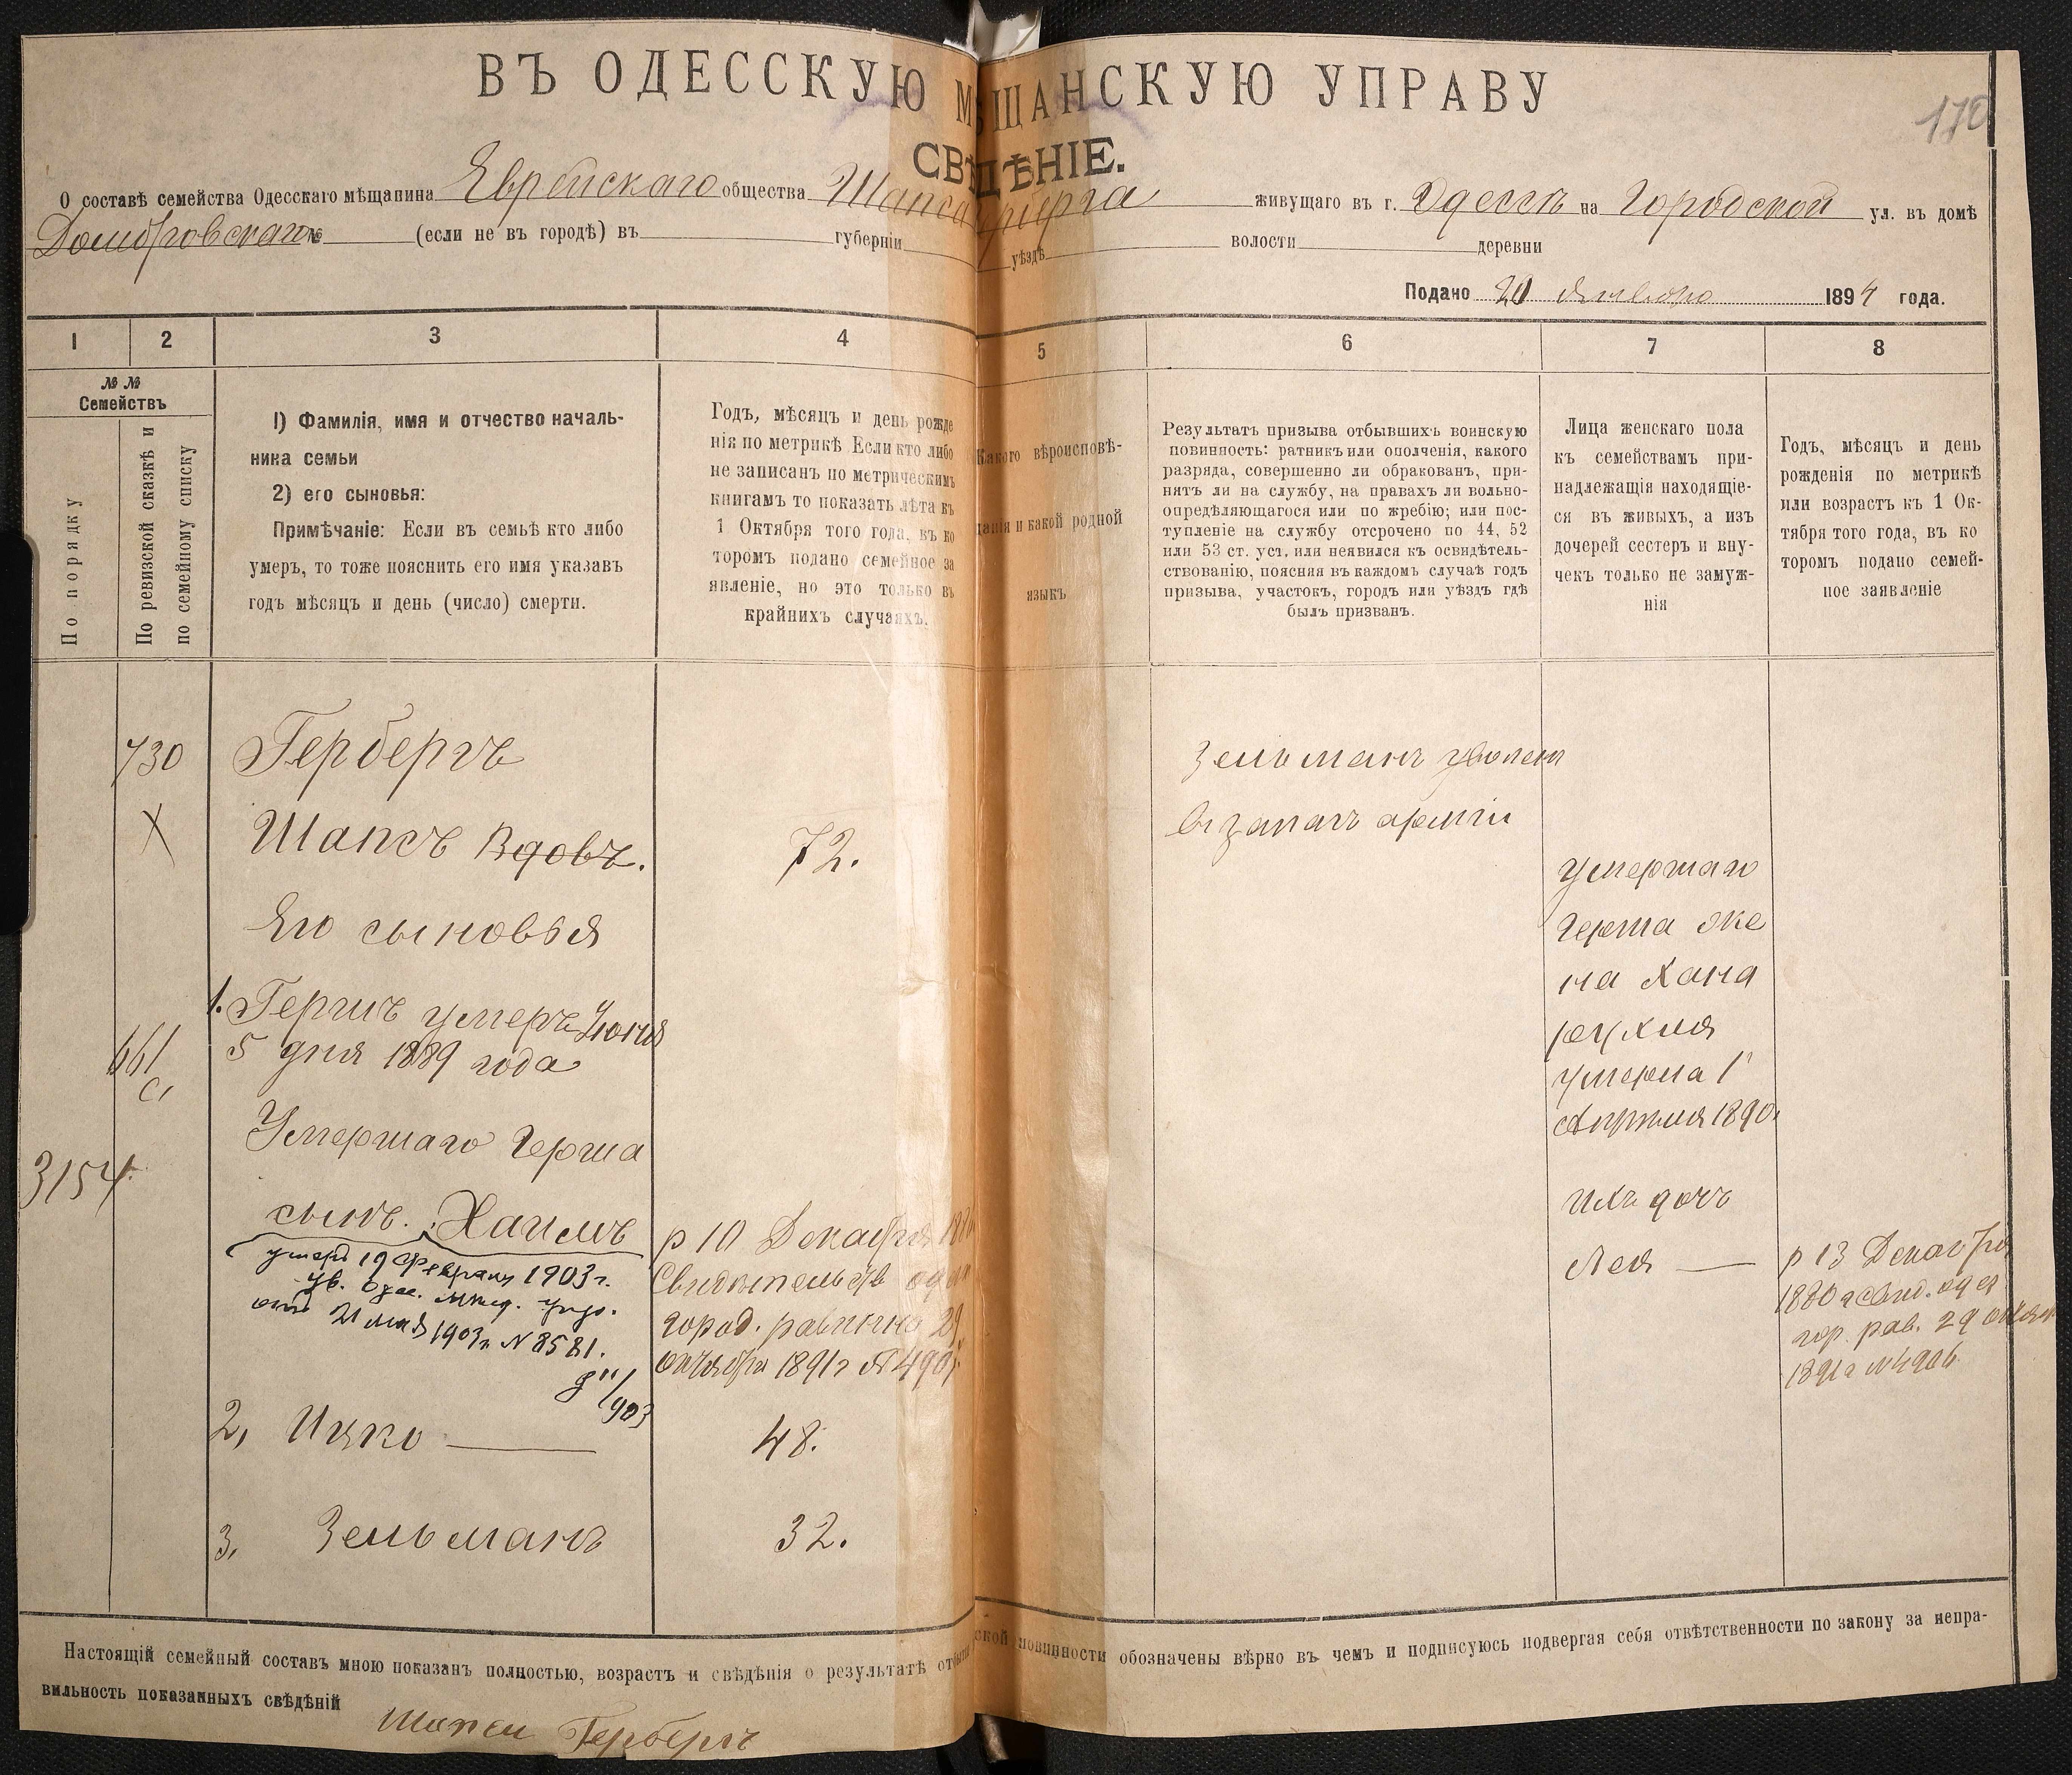 ВЪ ОДЕССКУЮ МѢЩАНСКУЮ УПРАВУ
СВѢДѢНІЕ.
О составѣ семейства Одесскаго мѣщанина Еврейскаго общества Шапса живущаго въ г. Одессѣ на Городской ул. въ домѣ
Домбровскаго № (если не въ городѣ) въ губерніи уѣздѣ волости деревни
Подано 20 Января 1894 года.
1 2 3 4 5 6 7 8
№ №
Семействъ
По порядку
По ревизской сказкѣ и
по семейному списку
1) Фамилія, имя и отчество началь-
ника семьи
2) его сыновья:
Примѣчаніе: Если въ семьѣ кто либо
умеръ, то тоже пояснить его имя указавъ
годъ мѣсяцъ и день (число) смерти.
Годъ, мѣсяцъ и день рожде
нія по метрикѣ Если кто либо
не записанъ по метрическимъ
книгамъ то показать лѣта къ
1 Октября того года, въ ко
торомъ подано семейное за
явленіе, но это только въ
крайнихъ случаяхъ.
Какого вѣроисповѣ-
данія и какой родной
языкъ
Результатъ призыва отбывшихъ воинскую
повинность: ратникъ или ополченія, какого
разряда, совершенно ли обракованъ, при-
нятъ ли на службу, на правахъ ли вольно-
опредѣляющагося или по жребію; или пос-
тупленіе на службу отсрочено по 44, 52
или 53 ст. уст. или неявился къ освидѣтель-
ствованію, поясняя въ каждомъ случаѣ годъ
призыва, участокъ, городъ или уѣздъ гдѣ
былъ призванъ.
Лица женскаго пола
къ семействамъ при-
надлежащія находящіе-
ся въ живыхъ, а изъ
дочерей сестеръ и вну-
чекъ только не замуж-
нія
Годъ, мѣсяцъ и день
рожденія по метрикѣ
или возрастъ къ 1 Ок-
тября того года, въ ко
торомъ подано семей-
ное заявленіе
730
X
661
с,
3154
Герберъ
Шапсъ Вдовъ.
Его сыновья
1. Гершъ умеръ Іюня
5 дня 1889 года
Умершаго Герша
сынъ. Хаимъ
умеръ 19 Февраля 1903 г.
Ув. Одес. Мѣщ. упр.
отъ 21 мая 1903 г. N 8581.
2, Ицко
3, Зельманъ
72.
р 10 Декабря
Свидѣтельств один
город. раввина 29
октября 1891 г №
48.
32.
Зельманъ уволенъ
въ запасъ арміи
умершаго
Герша же
на Хана
рухля
умерла 1
Апрѣля 1890.
ихъ дочь
Лея
р 13 Декабря
1880 г свид. одес
гор. рав. 29 октяб
1891 г № 4906
Настоящій семейный составъ мною показанъ полностью, возрастъ и свѣдѣнія о результатѣ отбытія ской повинности обозначены вѣрно въ чемъ и подписуюсь подвергая себя отвѣтственности по закону за непра-
вильность показанныхъ свѣдѣній
Шапси Герберъ